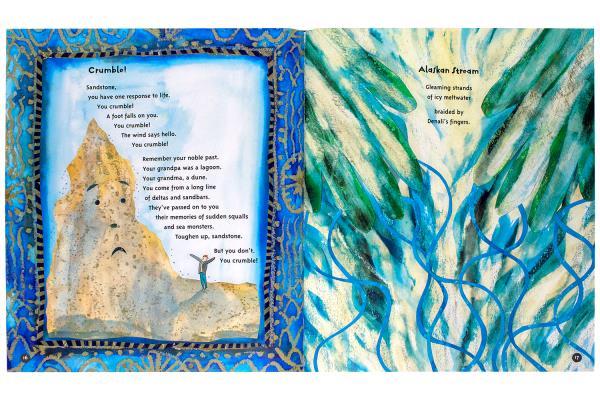 Crumble!
Sandstone,
you have one response to life.
You crumble!
A foot falls on you.
You crumble!
The wind says hello.
You crumble!
Remember your noble past.
Your grandpa was a lagoon.
Your grandma, a dune.
You come from a long line
of deltas and sandbars.
They've passed on to you
their memories of sudden squalls
and sea monsters.
Toughen up, sandstone.
But you don't.
You crumble!
16
Alaskan Stream
Gleaming strands
of icy meltwater
braided by
Denali's fingers.
17